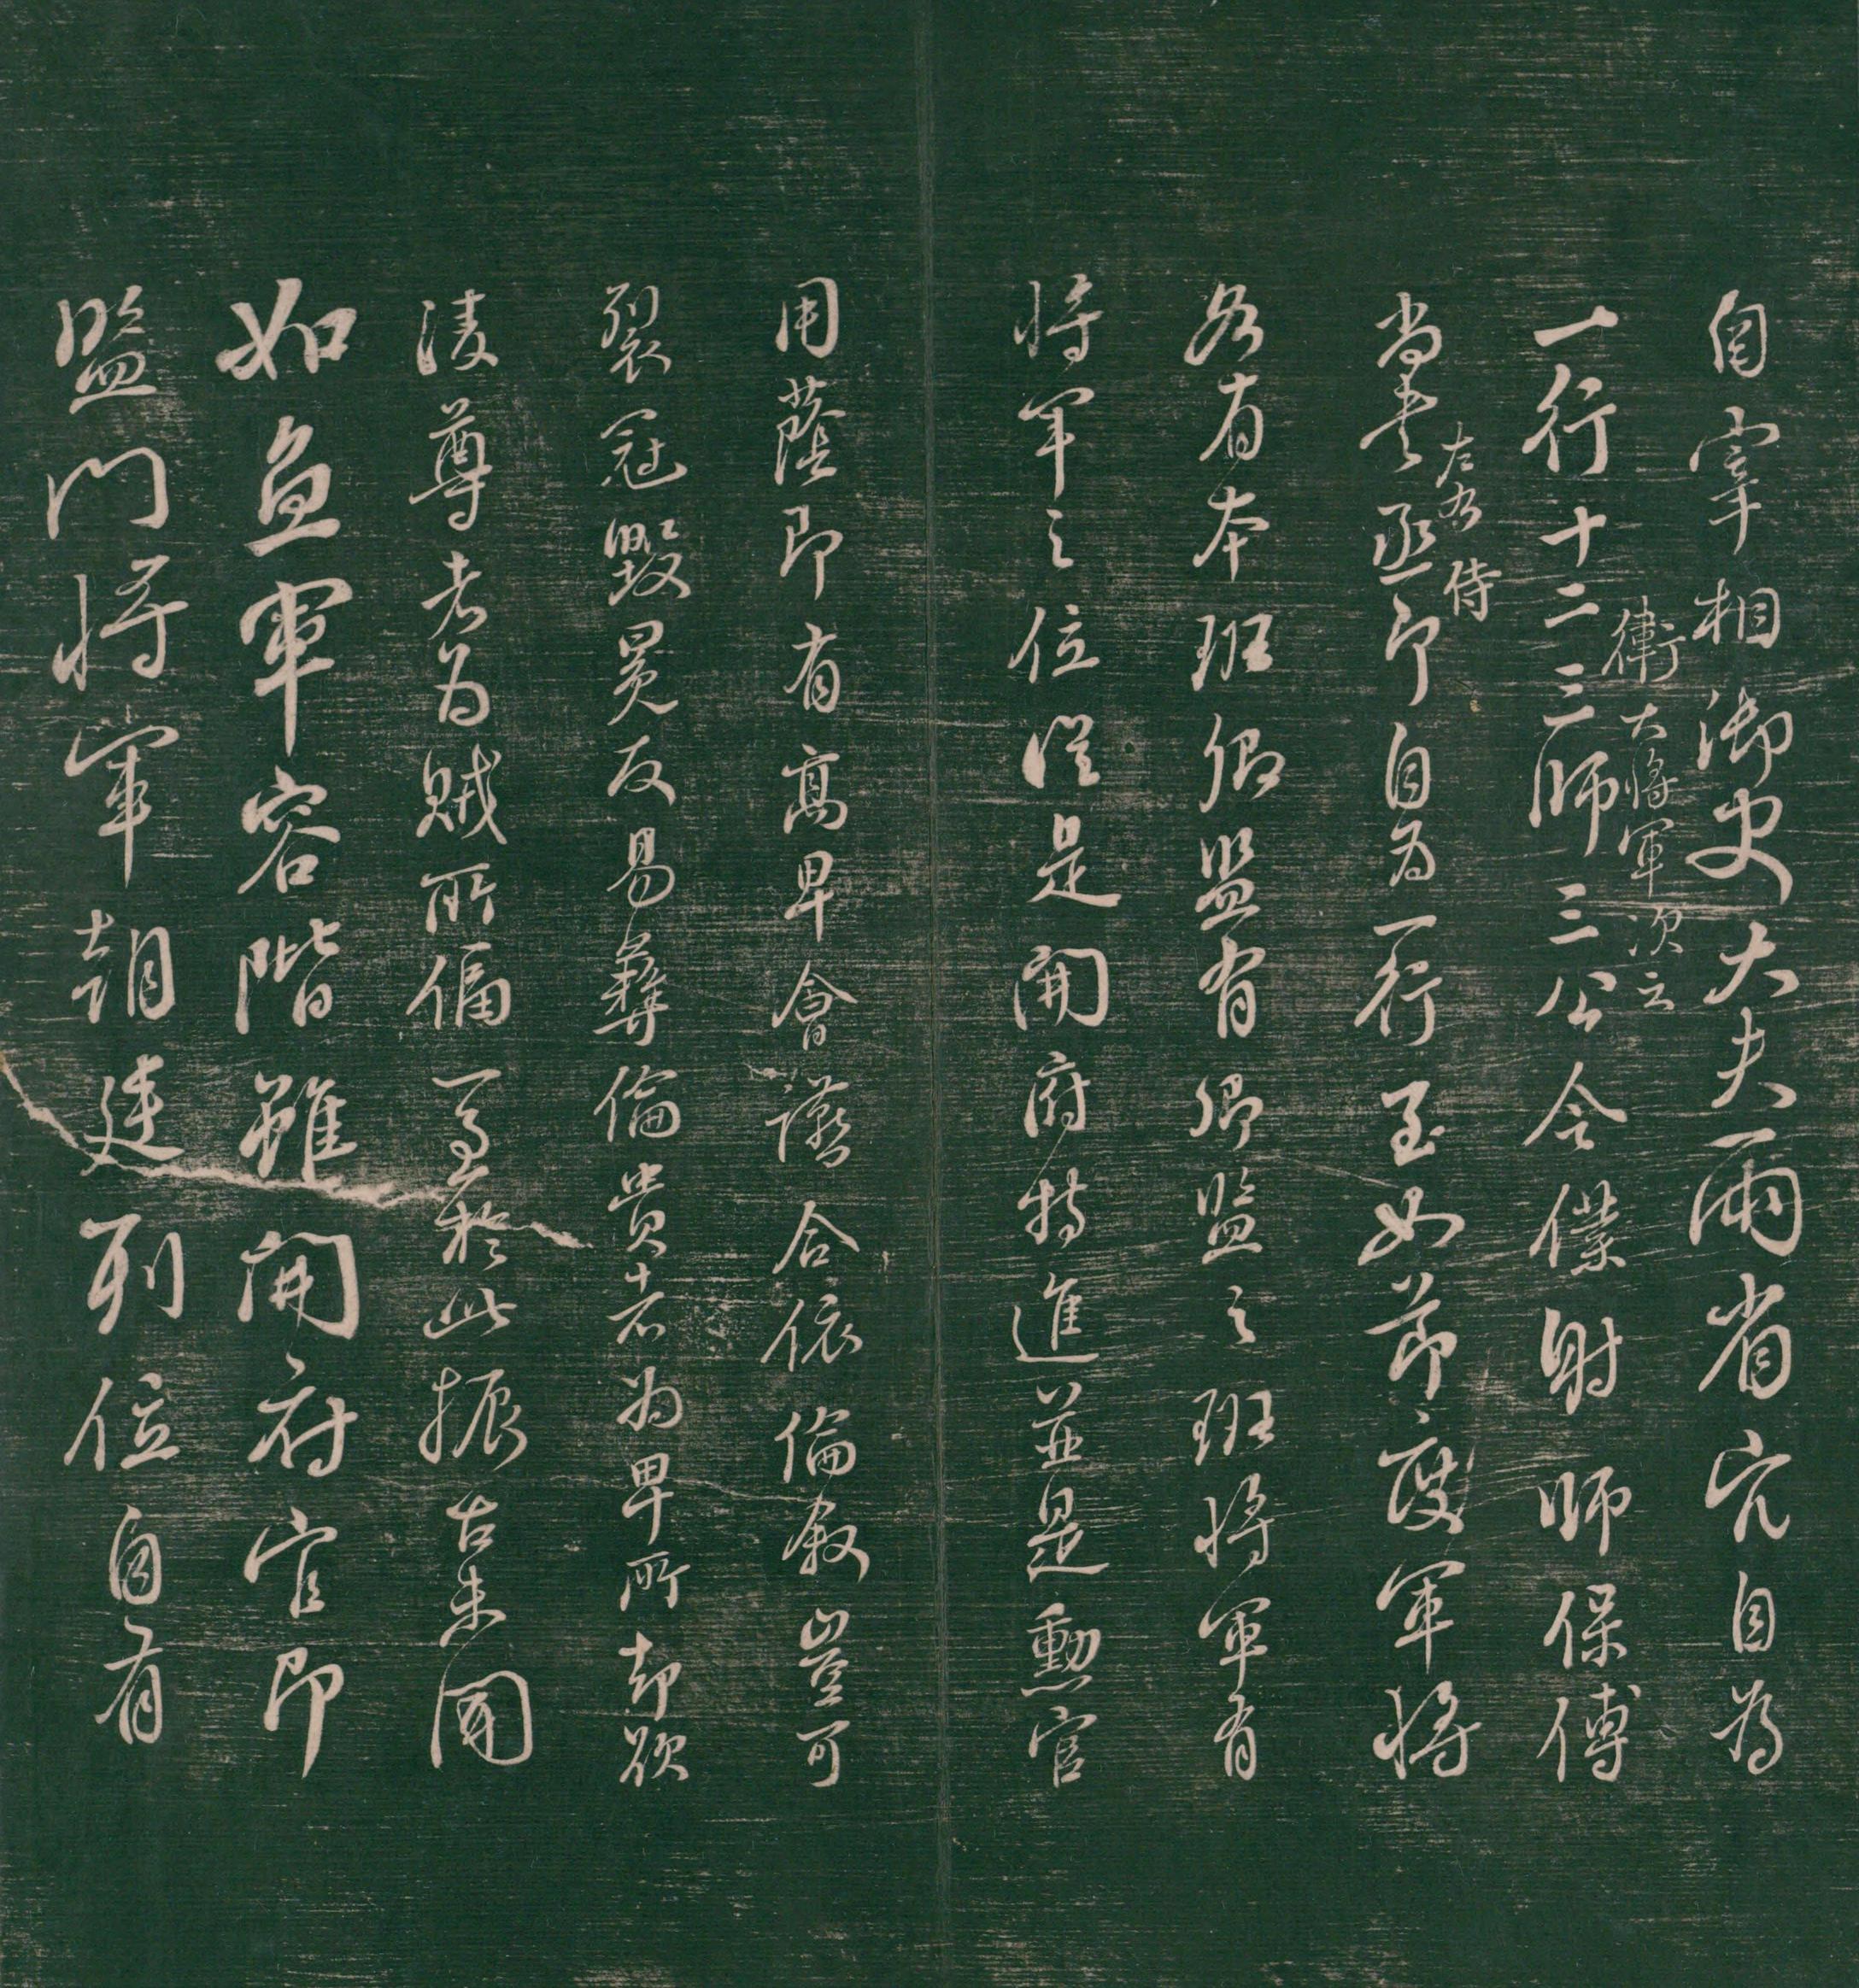 自宰相御史大夫兩省官自為
衛大將軍次之
一行十二三師三公令僕射師保傅
左右侍
尚書丞郎自為一行至如節度軍將
各有本班卿監有卿監之班將軍有
將軍之位縱是開府特進並是勳官
用蔭即有高卑會讌合依倫敘豈可
裂冠毀冕反易彝倫貴者為卑所却欲
淩尊者為賊所偪一至於此振古未聞
如魚軍容階雖開府官即
監門將軍朝廷列位自有